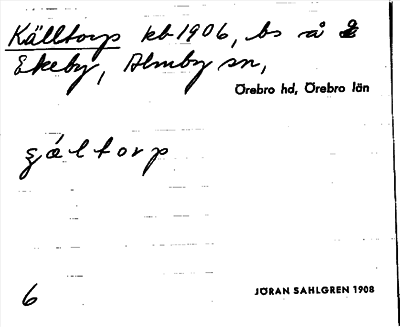 Källtorp kb 1906, bs å
Ekeby, Almby sn,
Örebro hd, Örebro län
gáltorp
6
JÖRAN SAHLGREN 1908